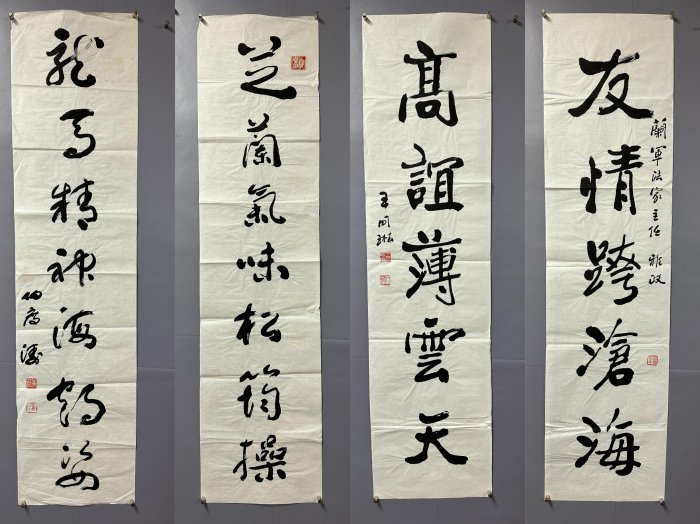 蘭軍法家主任 雅政
友情跨滄海
髙誼薄雲天
芝蘭氣味松筠操
龍馬精神海鶴姿